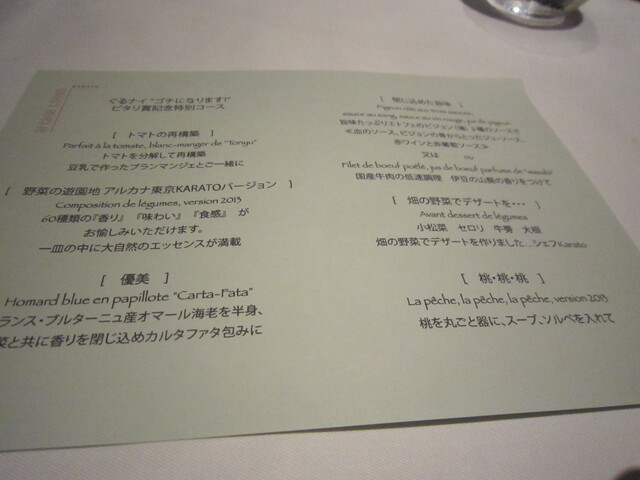 ぐるナイ "ゴチになります!"
ピタリ賞記念特別コース
[ トマトの再構築 ]
Parfait à la tomate, blanc-manger de "Tonyu"
トマトを分解して再構築
豆乳で作ったブランマンジェとご一緒に
[ 野菜の遊園地 アルカナ東京KARATOバージョン ]
Composition de légumes, version 2013
60種類の『香り』『味わい』『食感』 が
お愉しみいただけます。
一皿の中に大自然のエッセンスが満載
[ 優美 ]
Homard blue en papillote "Carta-Fata"
ランス・ブルターニュ産オマール海老を半身、
菜と共に香りを閉じ込めカルタファタ包みに
[ 閉じ込めた旨味 ]
Pigeon rôti aux trois sauces,
sauce au sang, sauce au vin rouge, jus de pigeon
旨味たっぷりエトフェのピジョン(鳩) 3種のソースで
≪血のソース、ピジョンの骨からとったジュソース、
赤ワインと赤葡萄ソース≫
又は ou
Filet de boeuf poêlé, jus de boeuf parfumé de "wasabi"
国産牛肉の低速調理 伊豆の山葵の香りをつけて
[ 畑の野菜でデザートを・・・ ]
Avant dessert de légumes
小松菜 セロリ 牛蒡 大根
畑の野菜でデザートを作りました…シェフKarato
[ 桃・桃・桃 ]
La pêche, la pêche, la pêche, version 2013
桃を丸ごと器に、スープ、ソルベを入れて